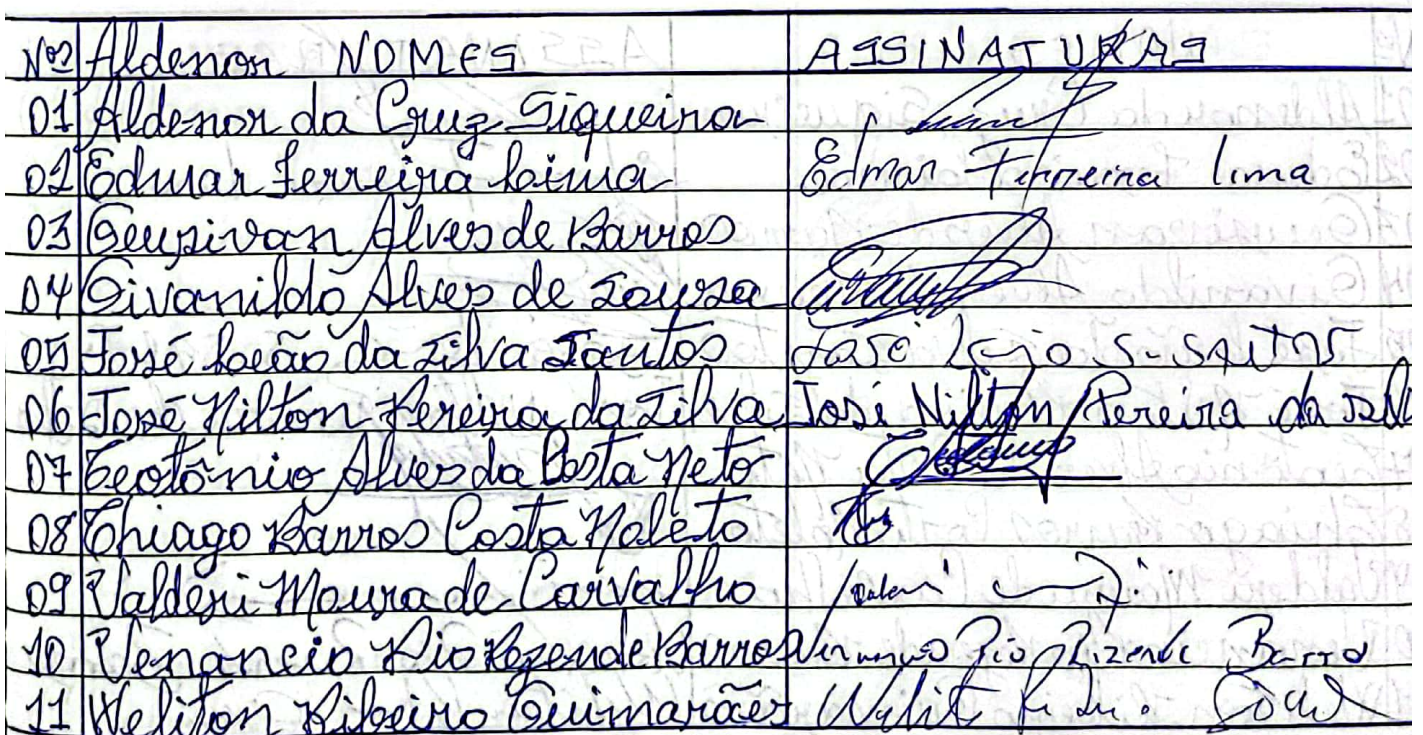 Nº Aldenor NOMES ASSINATURAS
01 Aldenor da Cruz Siqueira
02 Edmar Ferreira Lima Edmar Ferreira Lima
03 Geusivan Alves de Barros
04 Givanildo Alves de Souza
05 José Leão da Silva Santos José S. Santos
06 José Nilton Pereira da Silva José Nilton Pereira da
07 Teotônio Alves da Costa Neto
08 Thiago Barros Costa Noleto
09 Valderi Moura de Carvalho
10 Venancio Rio Rezende Barros Rio Rizende Barro
11 Weliton Ribeiro Guimarães